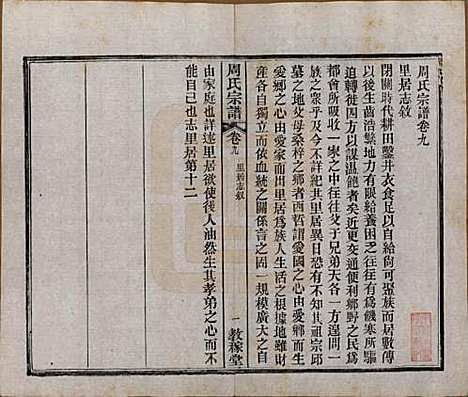 周氏宗譜卷九
里居志敘
閉關時代耕田鑿井衣食足以自給尙可聚族而居數傳
以後生齒浩繁地力有限給養困乏往往有爲饑寒所驅
迫輾轉徙四方以謀温飽者矣近更交通便利鄕野之民爲
都會所吸收一家之中往往父子兄弟天各一方遑問一
族之衆乎及今而不詳紀其里居異日恐有求其祖宗邱
墓之地父母桑梓之鄕者西哲謂愛國之心由愛鄕而生
愛鄕之心由愛家而出里居爲族人生活之根據地雖財
產各自獨立而依血統之關係言之固一規模廣大之自
周氏宗譜
卷九
里居志敘
一
敎稼堂
由家庭也詳述里居欲使後人油然生其孝弟之心而不
能自已也志里居第十二